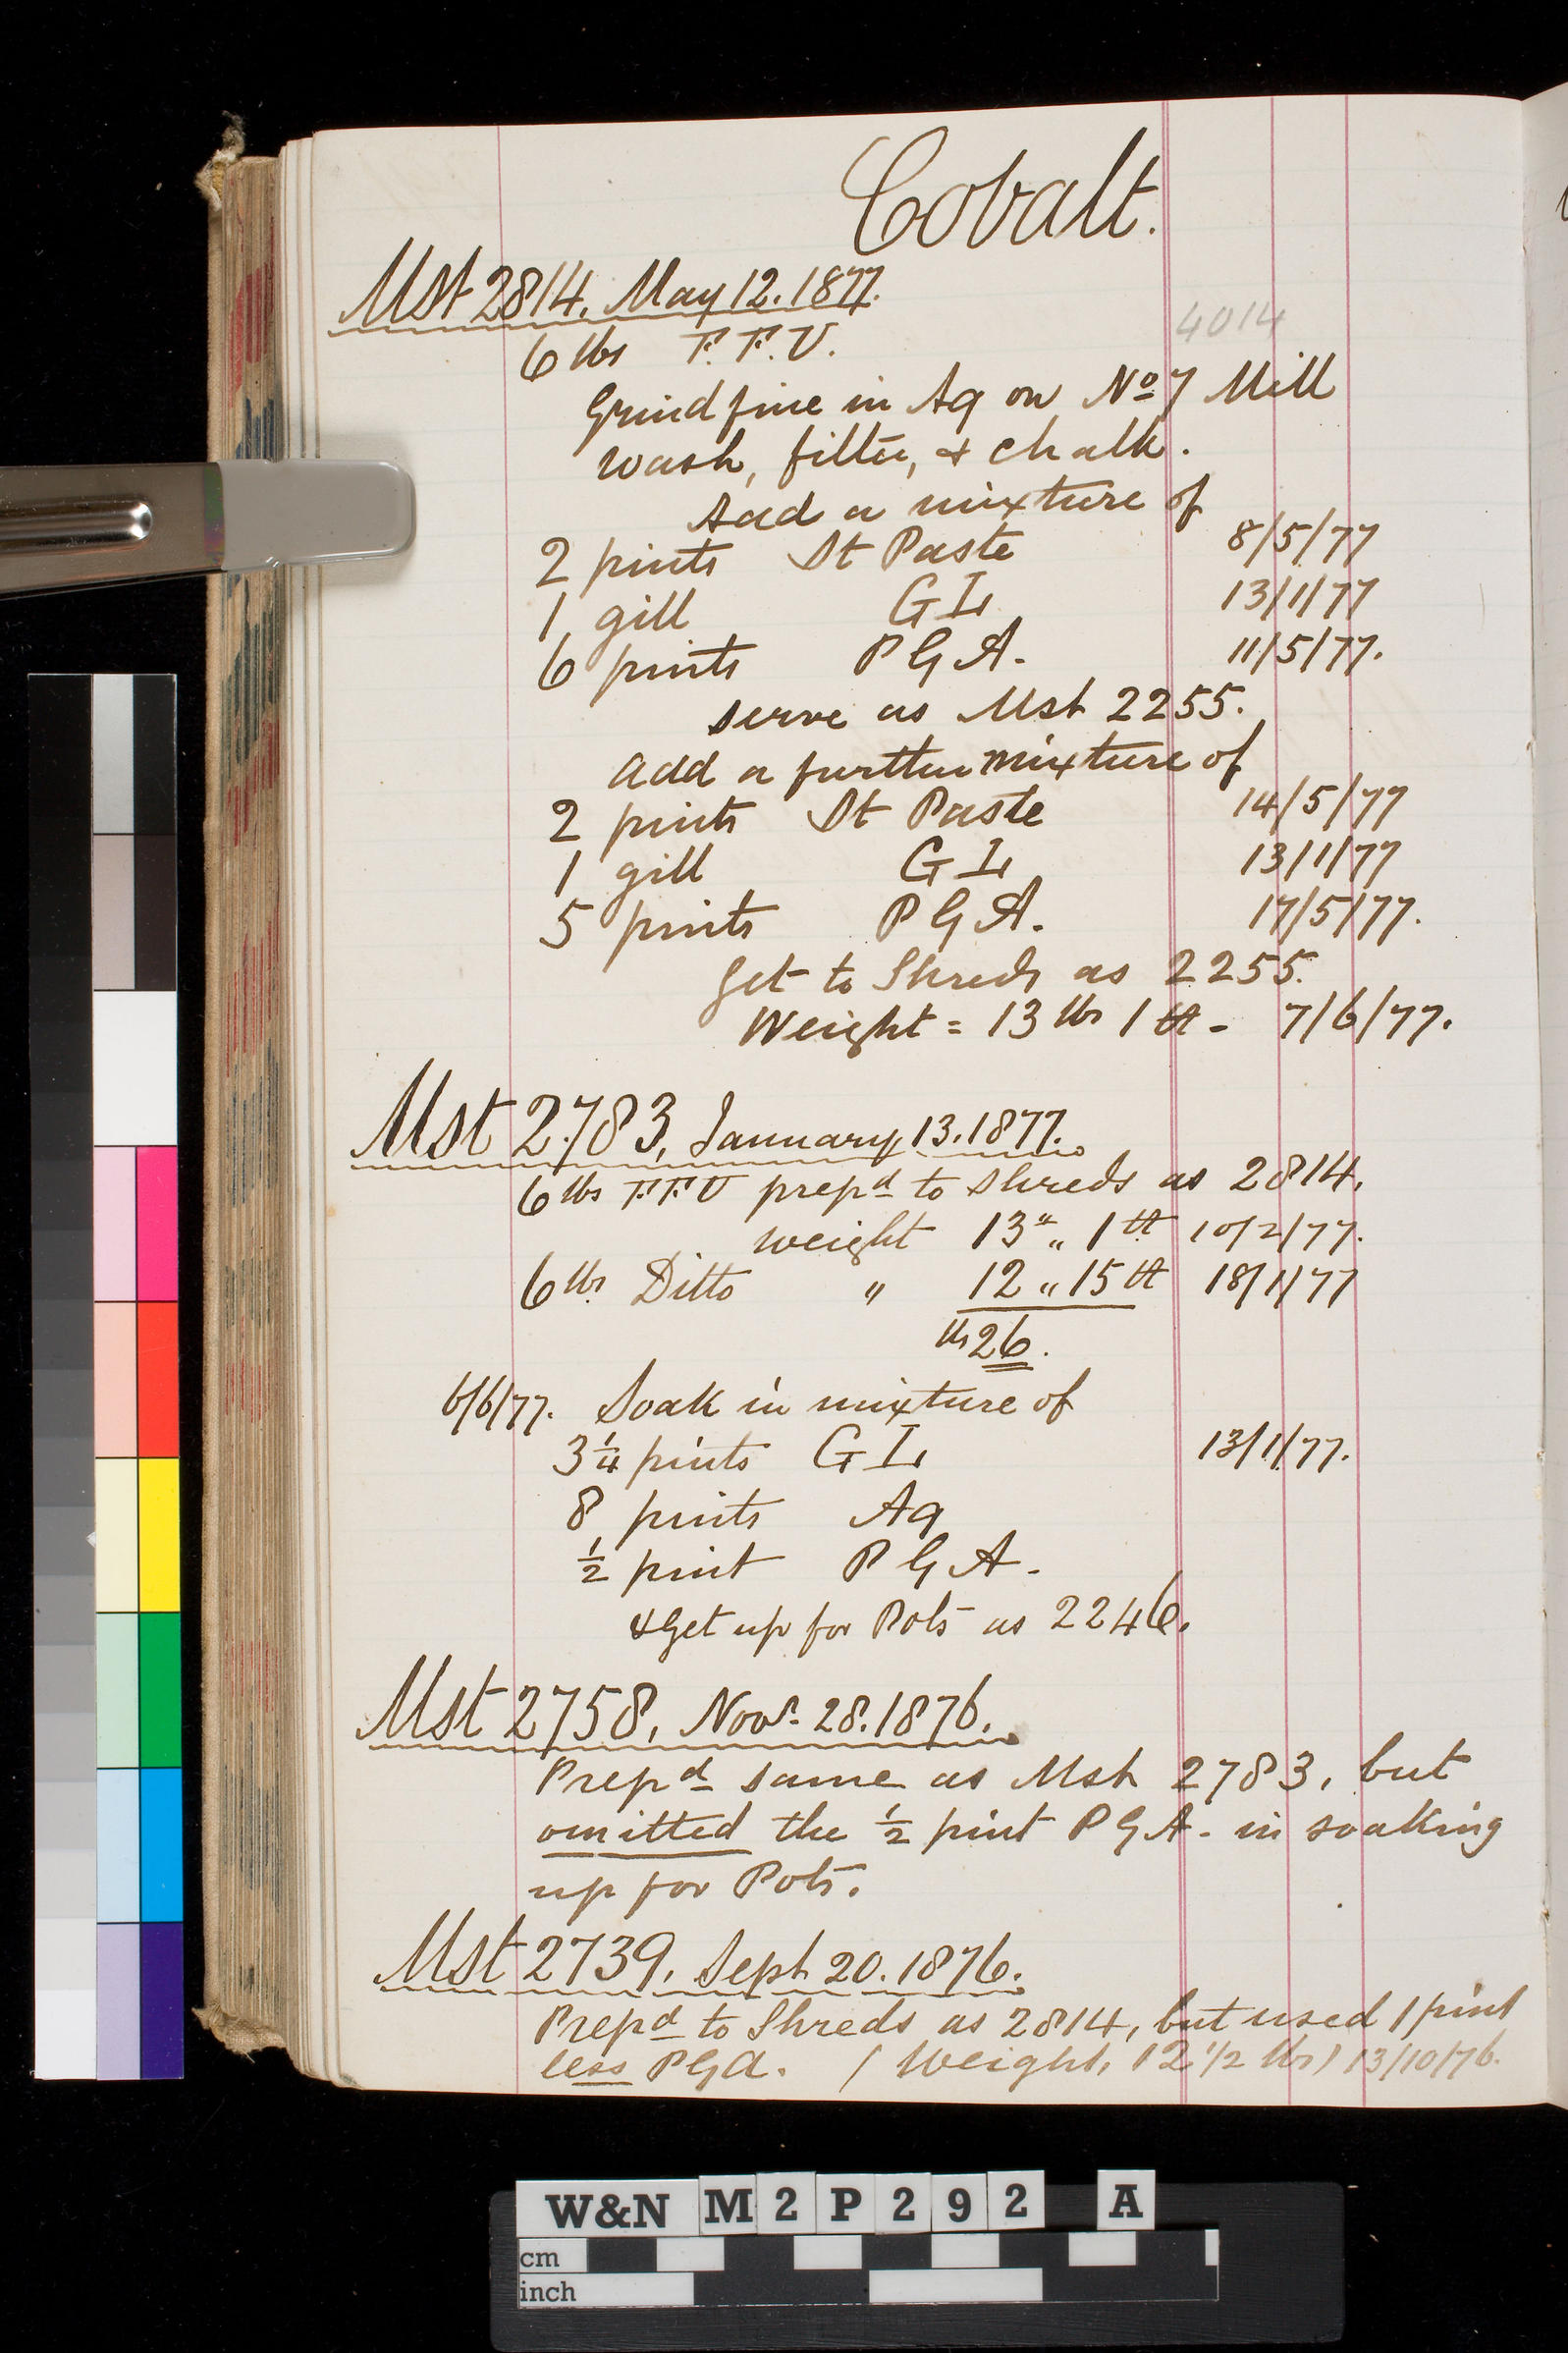 Cobalt.
Mst 2814. May 12. 1877.
4014
6 lbs F.F.U.
Grind fine in Aq on No 7 Mill
wash, filter, & chalk.
Add a mixture of
2 pints St Paste 8/5/77
1 gill GL 13/1/77
6 pints PGA. 11/5/77.
serve as Mst 2255.
add a further mixture of
2 pints St Paste 14/5/77
1 gill GL 13/1/77
5 pints PGA. 17/5/77.
Get to Shreds as 2255.
Weight = 13 lbs 1 - 7/6/77.
Mst 2783, January 13. 1877.
6 lbs FFU prepd to shreds as 2814.
weight 13 " 1 10/2/77.
6 lbs Ditto " 12 " 15 18/1/77
lbs 26.
6/6/77. Soak in mixture of
3 1/4 pints GL 13/1/77.
8 pints Aq
1/2 pint PGA.
& Get up for Pots as 2246.
Mst 2758. Novr. 28. 1876.
Prepd same as Mst 2783, but
omitted the 1/2 pint PGA. in soaking
up for Pots.
Mst 2739. Sept 20. 1876.
Prepd to Shreds as 2814, but used 1 pint
less PGA. (Weight, 12 1/2 lbs) 13/10/76.
W&N M2P292 A
cm
inch